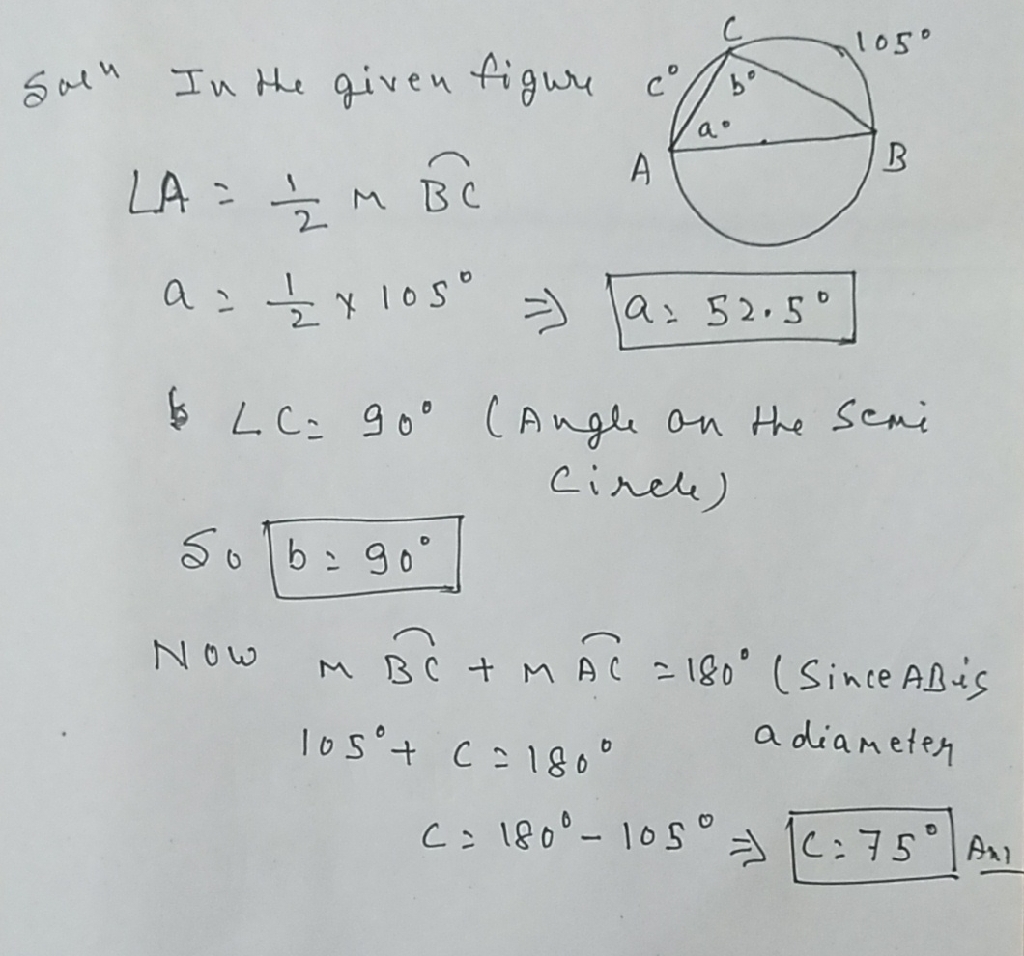 Solⁿ In the given figure
C
105°
c°
b°
a°
A
B
∠A = 1/2 m B͡C
a = 1/2 × 105° ⇒ a = 52.5°
∠C = 90° (Angle on the Semi
Circle)
So b = 90°
Now m B͡C + m A͡C = 180° (Since AB is
a diameter
105° + C = 180°
C = 180° - 105° ⇒ C = 75° Ans